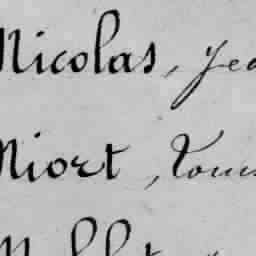 Nicolas, Jea
Niort, Tou